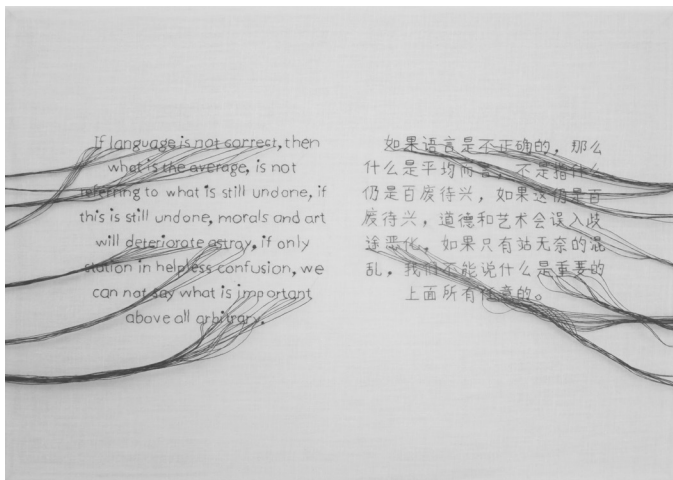 If language is not correct, then
what is the average, is not
referring to what is still undone, if
this is still undone, morals and art
will deteriorate astray, if only
station in helpless confusion, we
can not say what is important
above all arbitrary.
如果语言是不正确的，那么
什么是平均而言，不是指什么
仍是百废待兴，如果这仍是百
废待兴，道德和艺术会误入歧
途恶化，如果只有站无奈的混
乱，我们不能说什么是重要的
上面所有任意的。